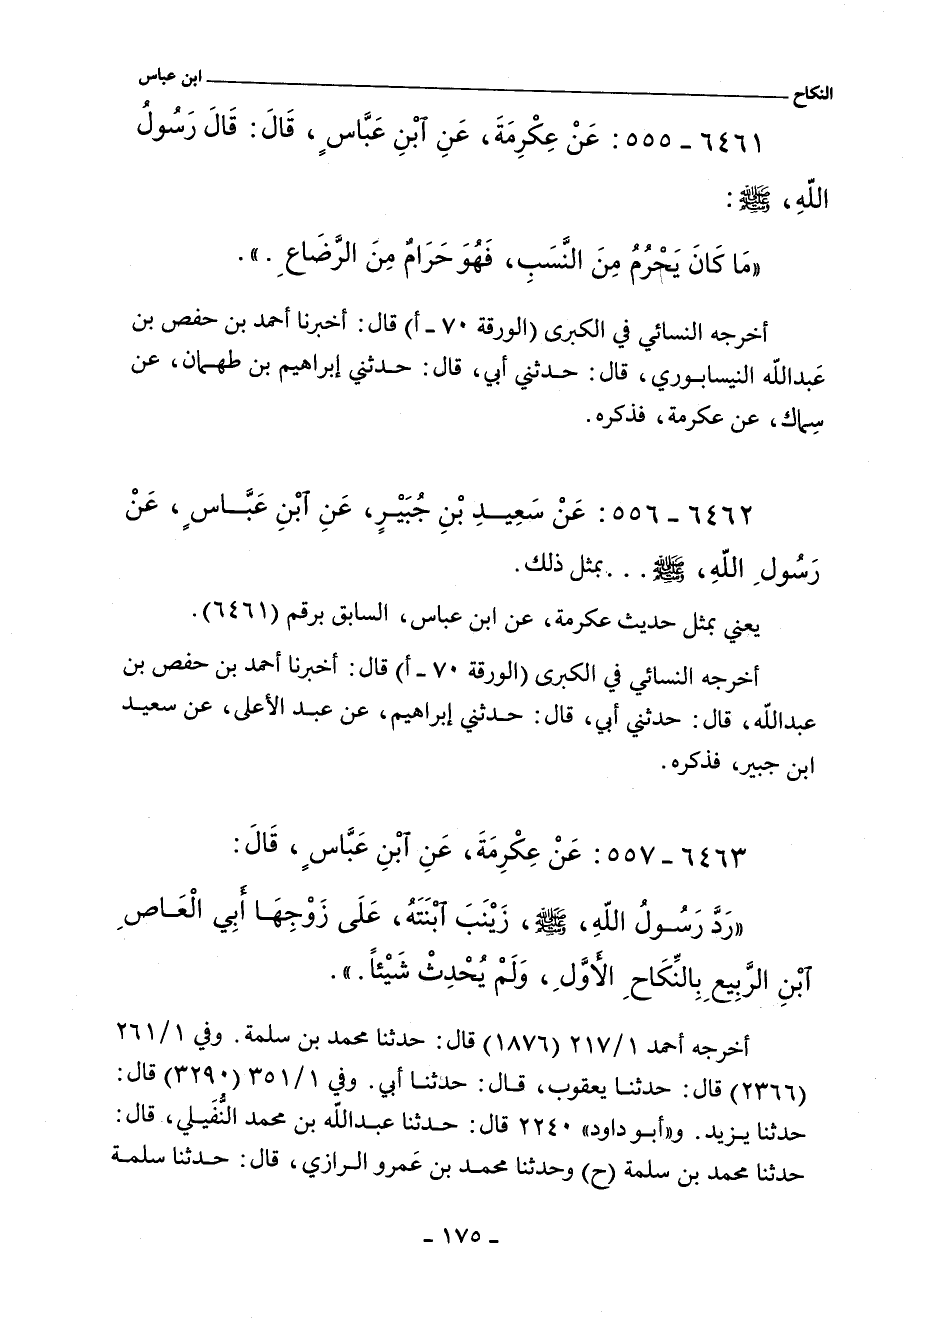 النكاح ابن عباس
٦٤٦١ ـ ٥٥٥ : عَنْ عِكْرِمَةَ، عَنِ ٱبْنِ عَبَّاسٍ، قَالَ: قَالَ رَسُولُ
اللّهِ، ﷺ:
«مَا كَانَ يَحْرُمُ مِنَ النَّسَبِ، فَهُوَ حَرَامٌ مِنَ الرَّضَاعِ.».
أخرجه النسائي في الكبرى (الورقة ٧٠ ـ أ) قال: أخبرنا أحمد بن حفص بن
عَبدالله النيسابوري، قال: حدثني أبي، قال: حدثني إبراهيم بن طهمان، عن
سِماك، عن عكرمة، فذكره.
٦٤٦٢ ـ ٥٥٦ : عَنْ سَعِيدِ بْنِ جُبَيْرٍ، عَنِ ٱبْنِ عَبَّاسٍ، عَنْ
رَسُولِ اللّهِ، ﷺ . . . بمثل ذلك.
يعني بمثل حديث عكرمة، عن ابن عباس، السابق برقم (٦٤٦١).
أخرجه النسائي في الكبرى (الورقة ٧٠ ـ أ) قال: أخبرنا أحمد بن حفص بن
عبدالله، قال: حدثني أبي، قال: حدثني إبراهيم، عن عبد الأعلى، عن سعيد
ابن جبير، فذكره.
٦٤٦٣ ـ ٥٥٧ : عَنْ عِكْرِمَةَ، عَنِ ٱبْنِ عَبَّاسٍ، قَالَ:
«رَدَّ رَسُولُ اللّهِ، ﷺ، زَيْنَبَ ٱبْنَتَهُ، عَلَى زَوْجِهَا أَبِي الْعَاصِ
ٱبْنِ الرَّبِيعِ بِالنِّكَاحِ الأَوَّلِ، وَلَمْ يُحْدِثْ شَيْئاً.».
أخرجه أحمد ٢١٧/١ (١٨٧٦) قال: حدثنا محمد بن سلمة. وفي ٢٦١/١
(٢٣٦٦) قال: حدثنا يعقوب، قال: حدثنا أبي. وفي ٣٥١/١ (٣٢٩٠) قال:
حدثنا يزيد. و«أبو داود» ٢٢٤٠ قال: حدثنا عبدالله بن محمد النُّفَيلي، قال:
حدثنا محمد بن سلمة (ح) وحدثنا محمد بن عَمرو الرازي، قال: حدثنا سلمة
ـ ١٧٥ ـ